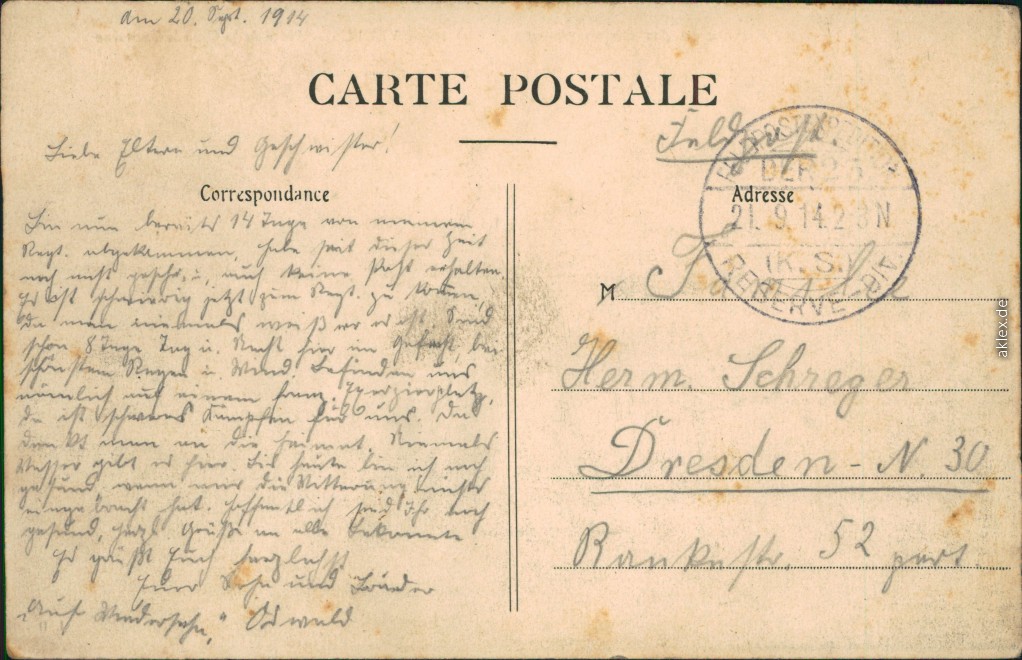 am 20. Sept. 1914
CARTE POSTALE
Liebe Eltern und Geschwister!
Correspondance
Bin nun bereits 14 Tage von meinem
Regt. abgekommen, habe seit dieser Zeit
noch nicht u. auch keine Post erhalten.
Es ist schwierig jetzt zum Regt. zu kommen,
da man niemals weiß wo es ist. Sind
schon 8 Tage Tag u. Nacht hier im Gefecht, bei
schönstem Regen u. Wind befinden uns
nämlich auf einem franz. Exerzierplatz,
da ist schweres Kämpfen für uns. Da
denkt man an die Heimat. Niemals
Wasser gibt es hier. Bis heute bin ich noch
gesund, wenn nur die Witterung nichts
eingebracht hat. Hoffentlich seid Ihr noch
gesund, herzl. Grüße an alle Bekannte
Es grüßt Euch herzlichst
Euer Sohn und Bruder
„Auf Wiedersehn," Oswald
Feldpost.
FELDPOSTEXPEDITION
DER 23.
21. 9. 14. 2-3 N
(K. S.)
RESERVE-DIV.
Adresse
M Familie
Herm. Schreger
Dresden - N. 30
Rankestr. 52 part.
aklex.de